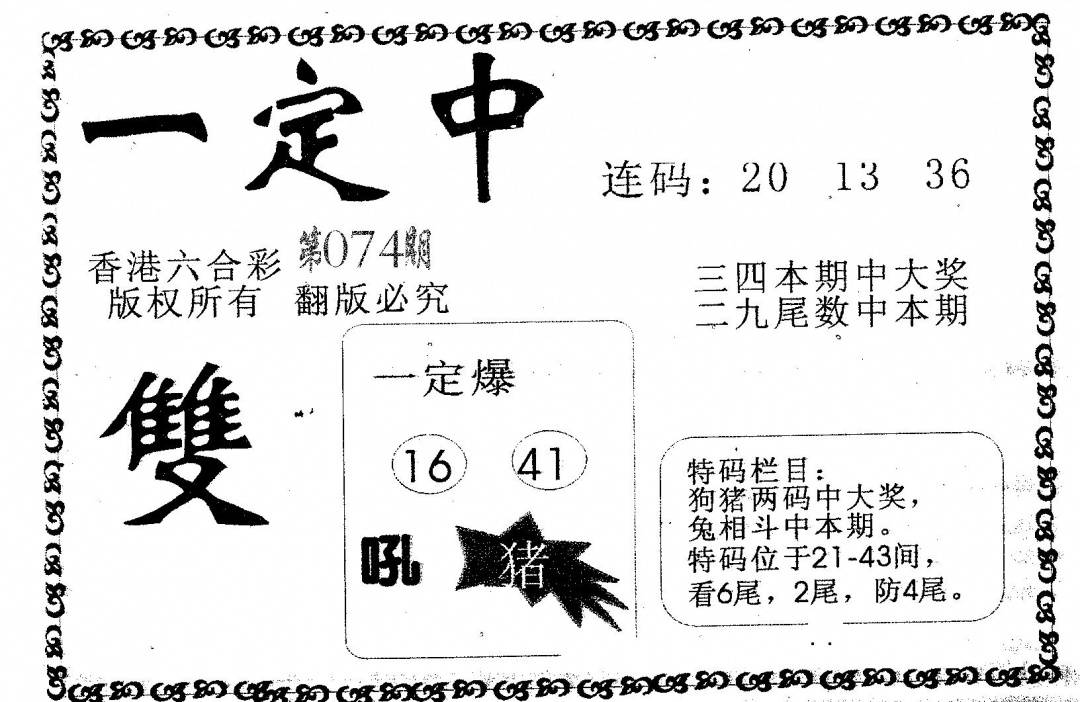 一定中
连码：20 13 36
香港六合彩 第074期
版权所有 翻版必究
三四本期中大奖
二九尾数中本期
雙
一定爆
16 41
吼 猪
特码栏目：
狗猪两码中大奖，
兔相斗中本期。
特码位于21-43间，
看6尾，2尾，防4尾。